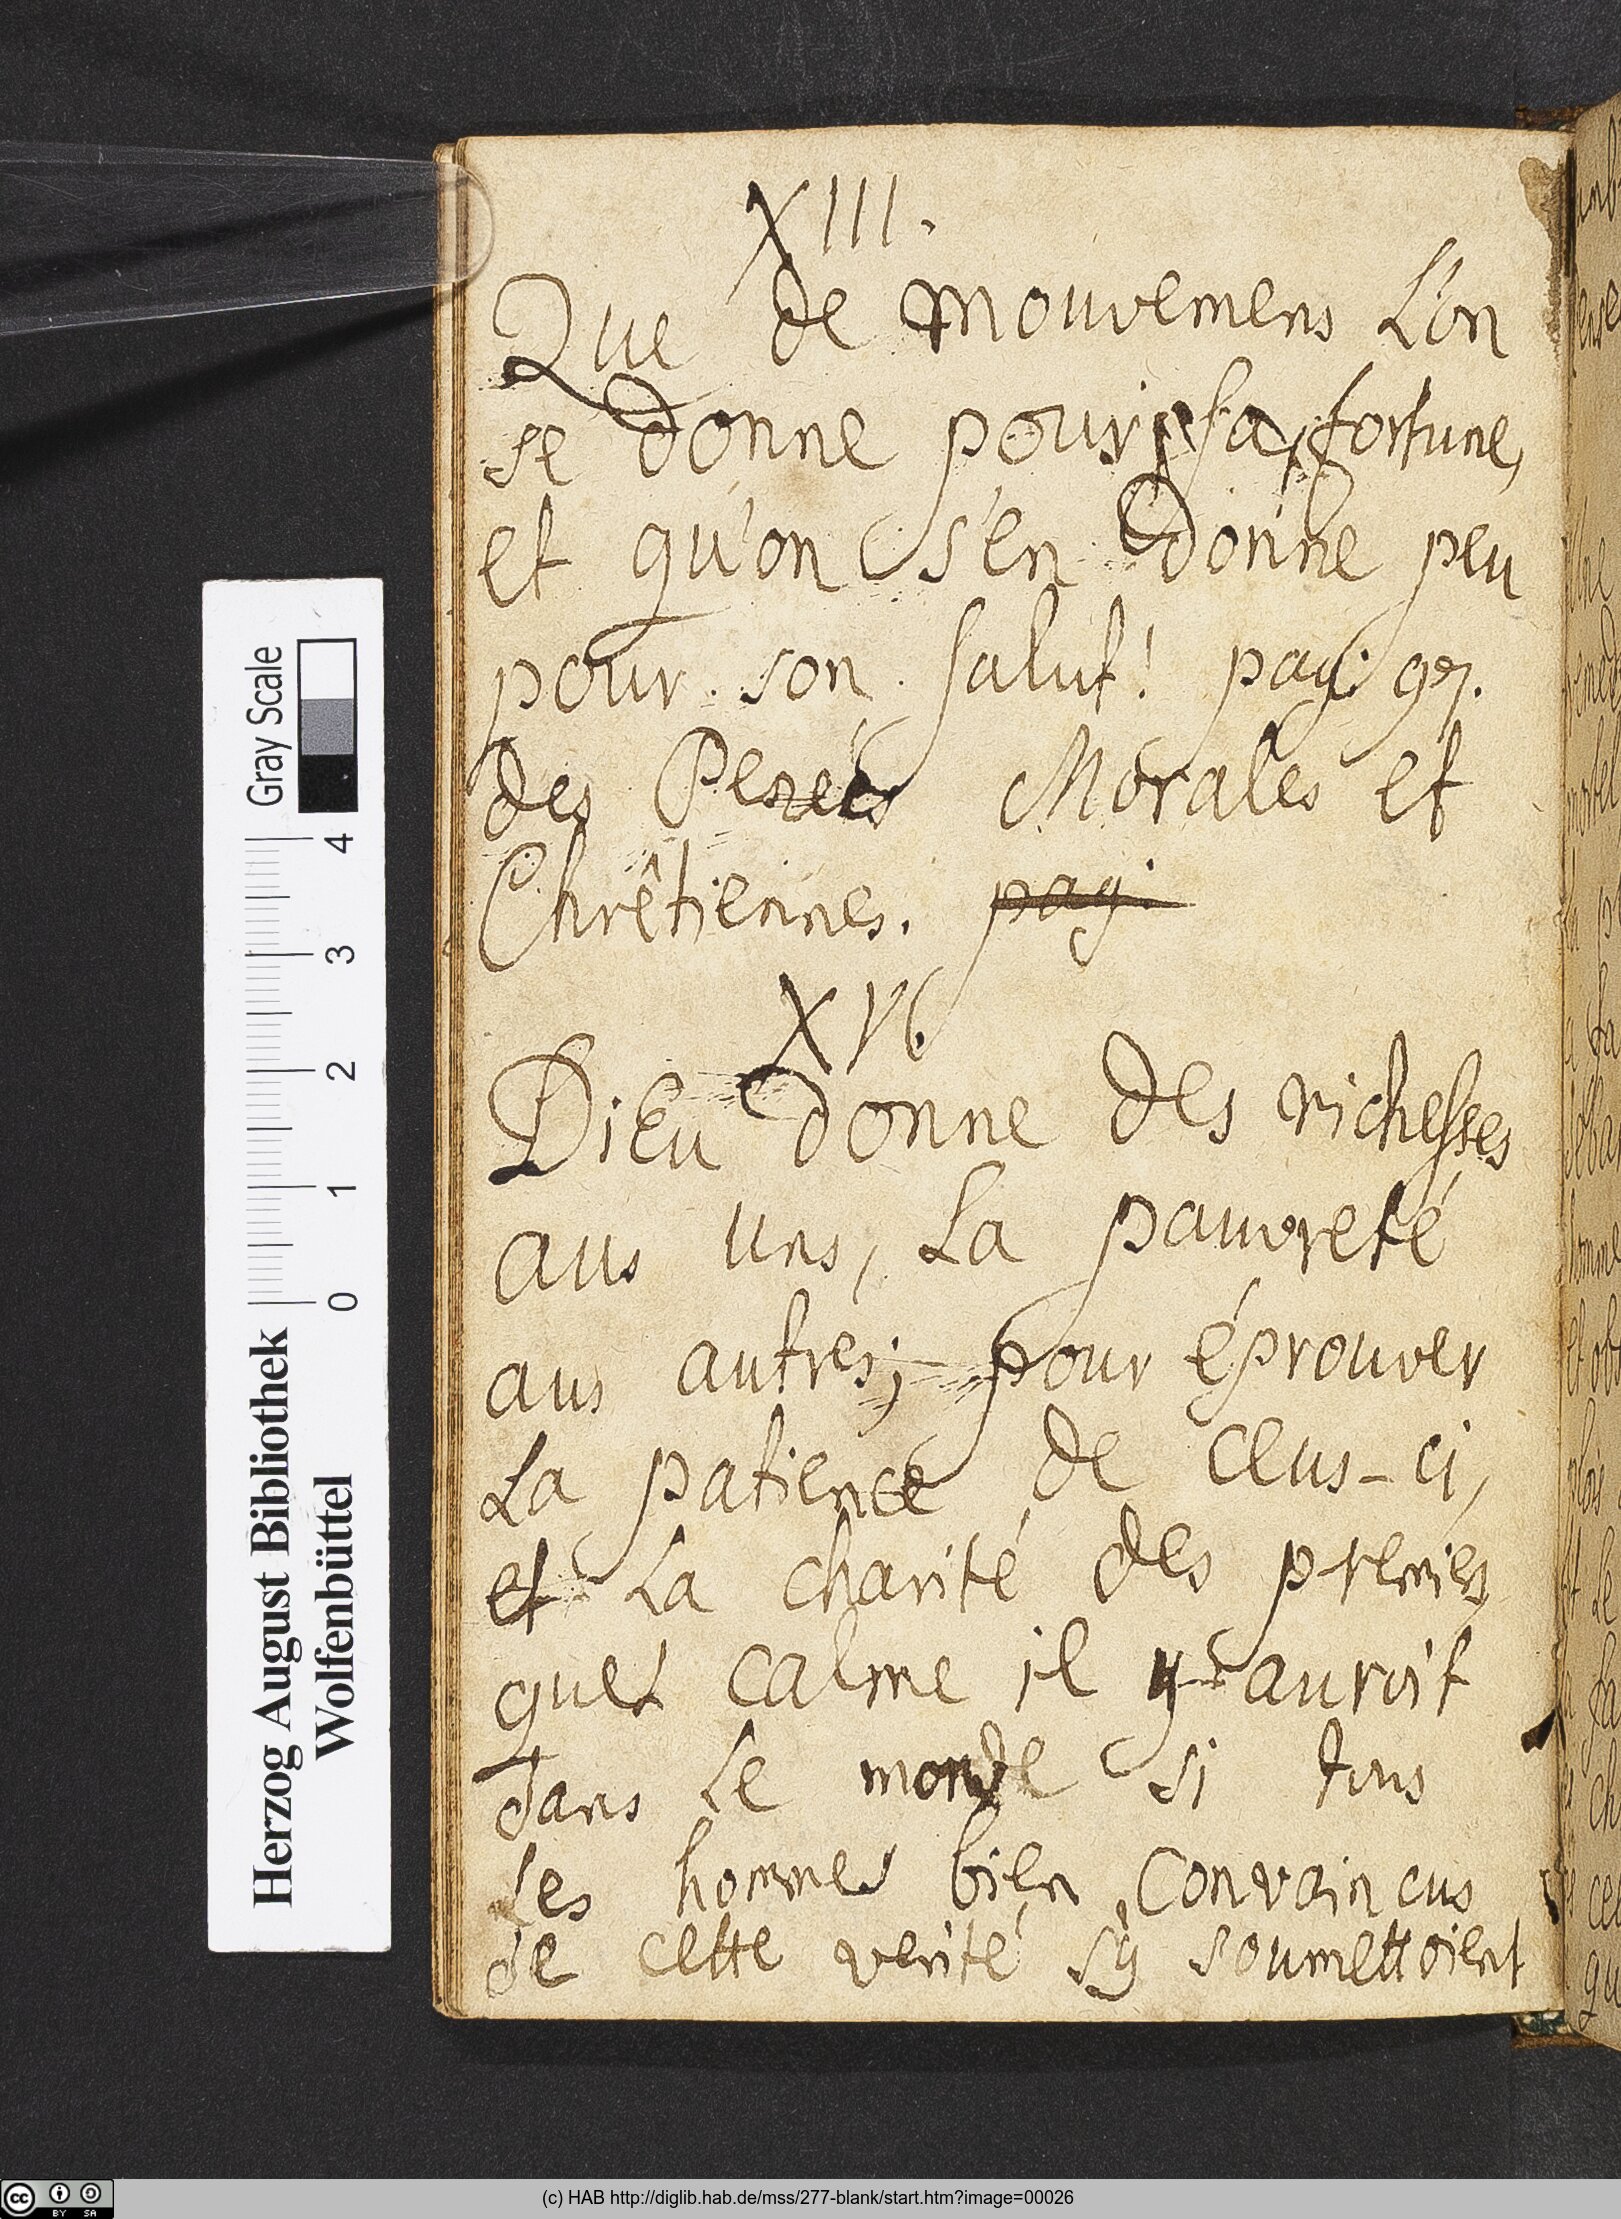 XIII.
Que de mouvemens L'on
se donne pour sa fortune,
et qu'on s'en donne peu
pour son salut! pag: 97.
des Penées Morales et
Chrêtiennes. pag:
XVI.
Dieu donne des richesses
aus uns, La pauvreté
aus autres; pour éprouver
La patience de ceus-ci,
et La charité des premies,
quel calme il y auroit
dans Le monde si tous
Les hommes bien convaincus
de cette verité s'y soumettoient
Gray Scale
4 3 2 1 0
Herzog August Bibliothek
Wolfenbüttel
cc BY SA
(c) HAB http://diglib.hab.de/mss/277-blank/start.htm?image=00026